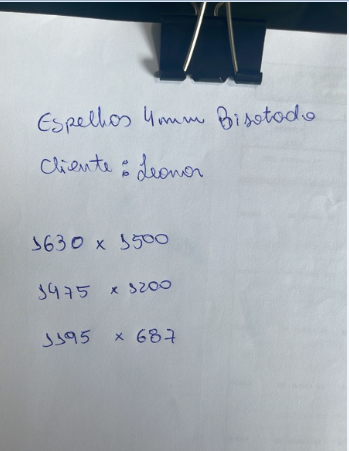 Espelhos 4mm Bisotado
Cliente: Leonor
1630 x 1500
1475 x 1200
1195 x 687